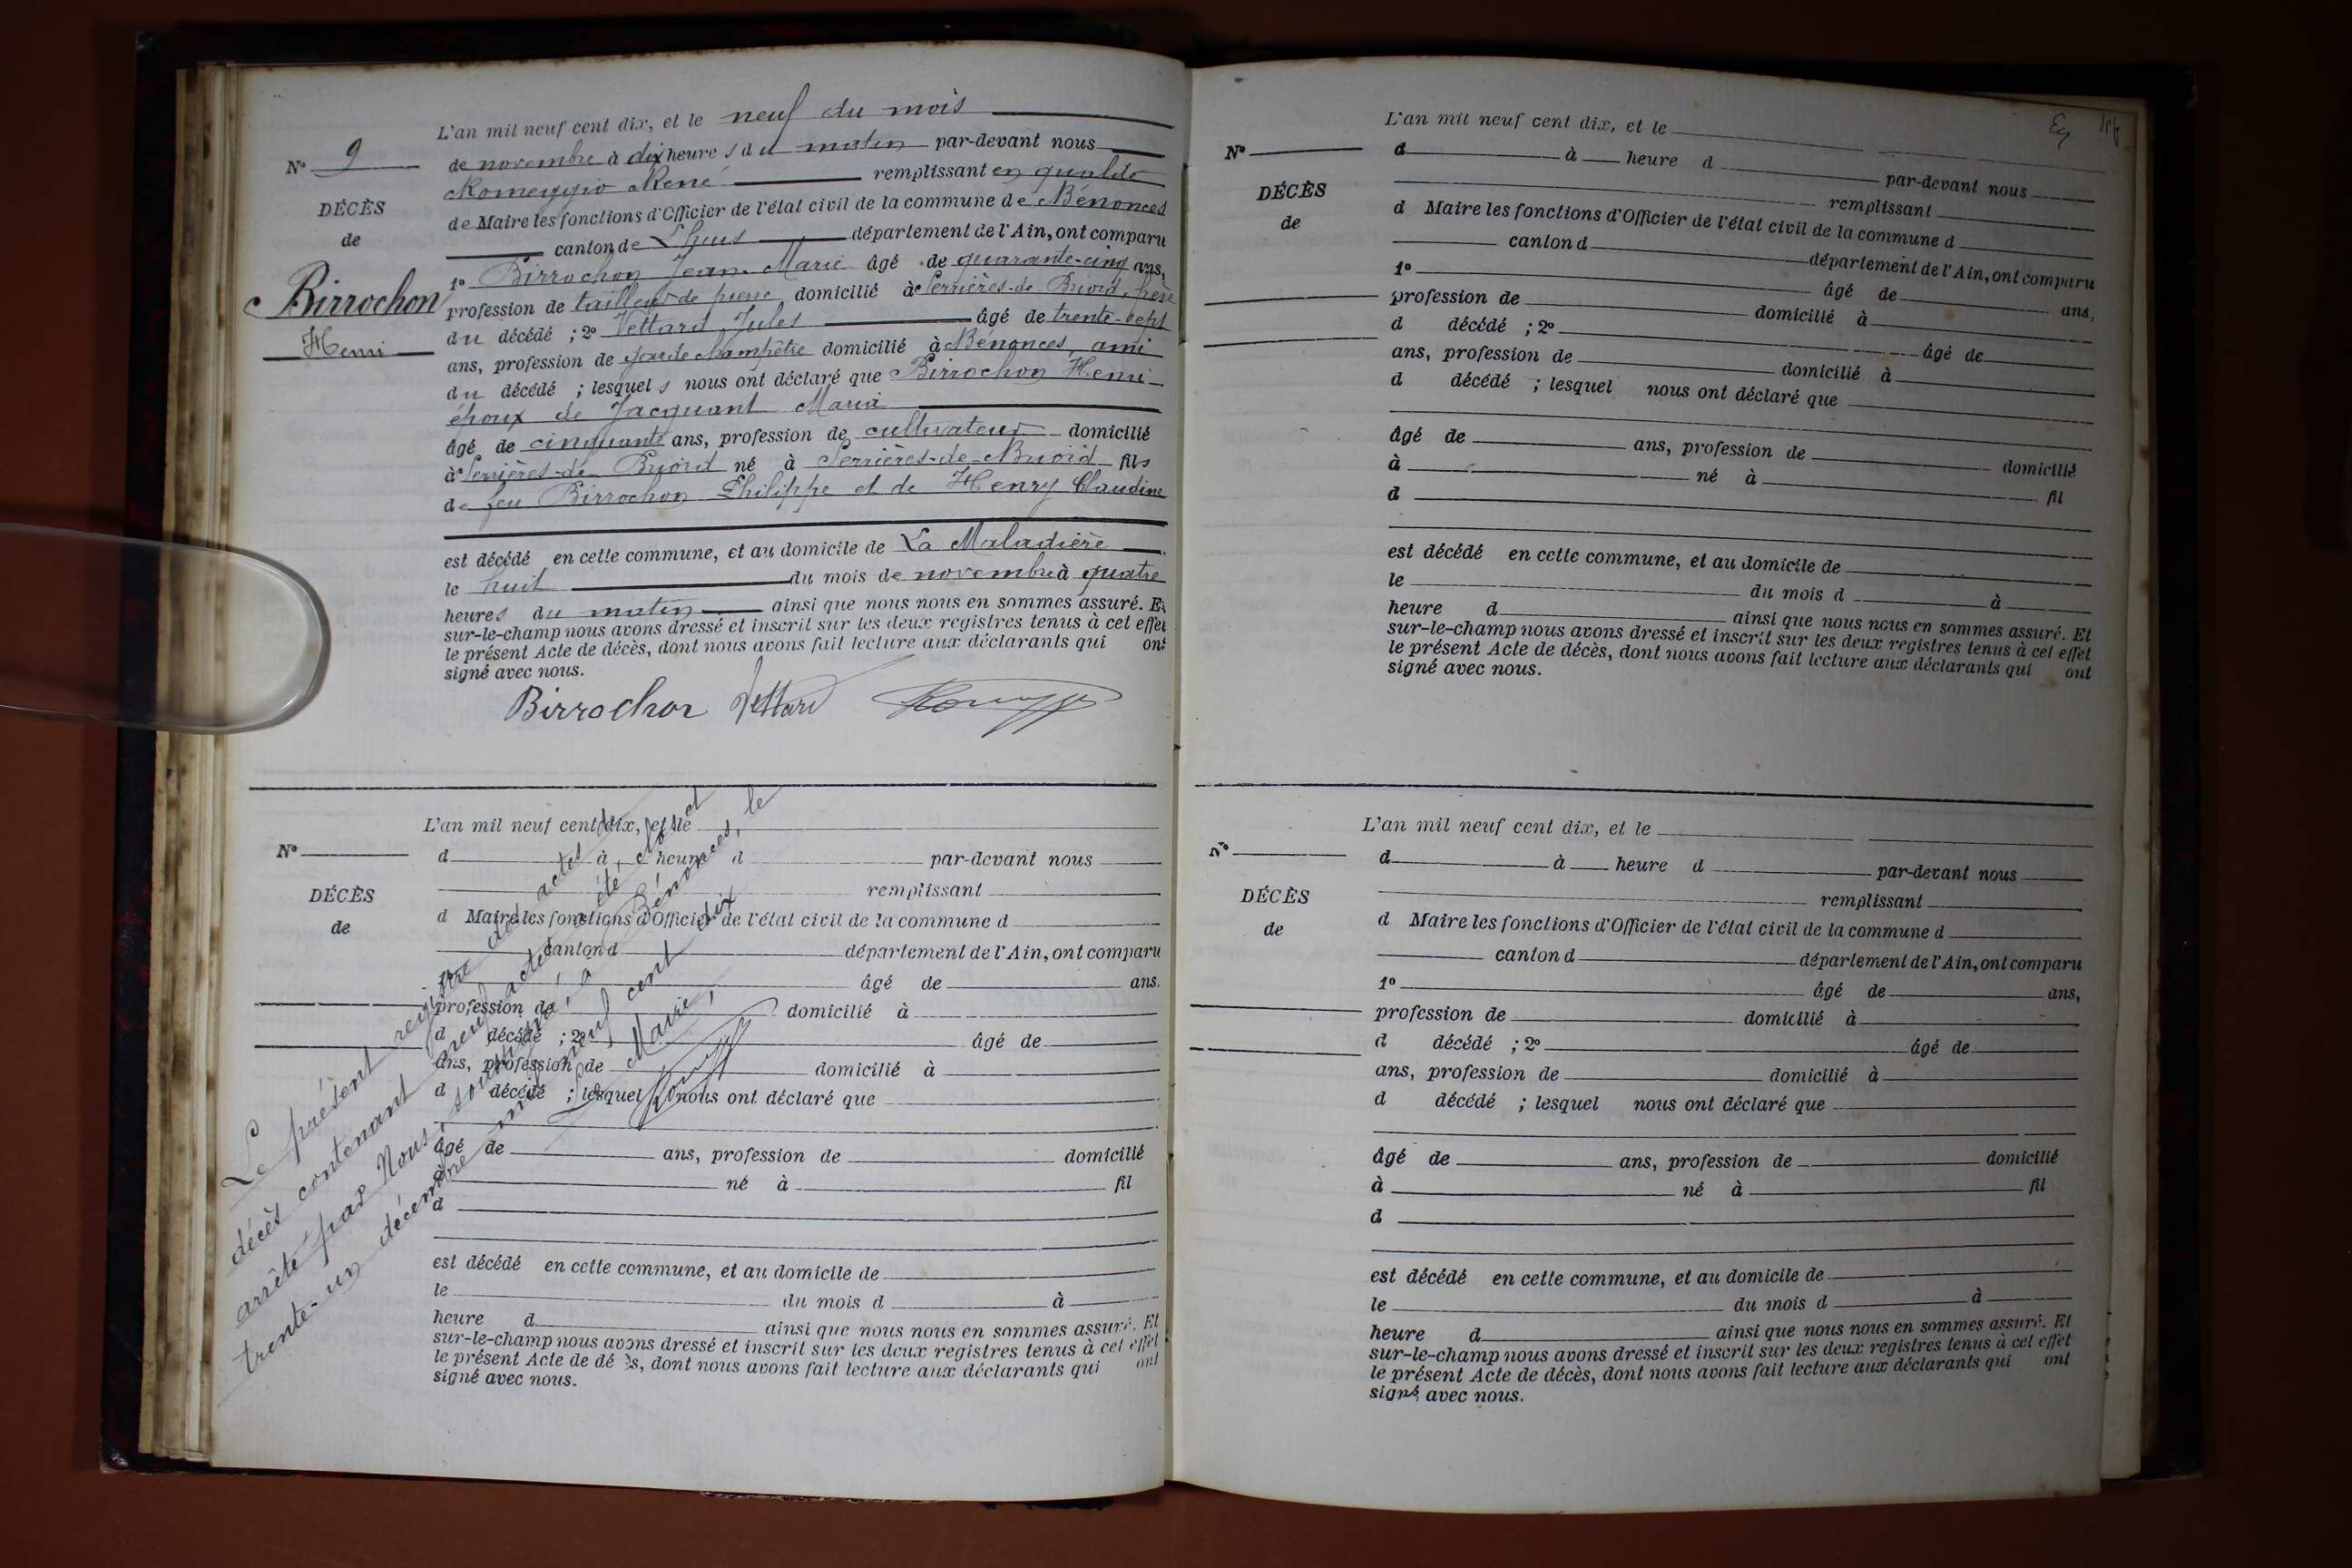 L'an mil neuf cent dix, et le neuf du mois
N° 9
de novembre à dix heures du matin par-devant nous
Romeggio René remplissant en qualité
DÉCÈS
de Maire les fonctions d'Officier de l'état civil de la commune de Bénonces
de
canton de Lhuis département de l'Ain, ont comparu
Birrochon
Henri
1° Birrochon Jean-Marie âgé de quarante-cinq ans,
profession de tailleur de pierre domicilié à Serrières-de-Briord, frère
du décédé ; 2° Vettard Jules âgé de trente-sept
ans, profession de garde champêtre domicilié à Bénonces, ami
du décédé ; lesquels nous ont déclaré que Birrochon Henri
époux de Jacquant Maria
âgé de cinquante ans, profession de cultivateur domicilié
à Serrières-de Briord né à Serrières-de-Briord fils
de feu Birrochon Philippe et de Henry Claudine
est décédé en cette commune, et au domicile de La Maladière
le huit du mois de novembre à quatre
heures du matin ainsi que nous nous en sommes assuré. Et
sur-le-champ nous avons dressé et inscrit sur les deux registres tenus à cet effet
le présent Acte de décès, dont nous avons fait lecture aux déclarants qui ont
signé avec nous.
Birrochon Vettard
L'an mil neuf cent dix, et le
N°
d à heure d par-devant nous
remplissant
DÉCÈS
d Maire les fonctions d'Officier de l'état civil de la commune d
de
canton d département de l'Ain, ont comparu
âgé de ans.
profession de domicilié à
d décédé ; 2° âgé de
ans, profession de domicilié à
d décédé ; lesquel nous ont déclaré que
âgé de ans, profession de domicilié
à né à fil
d
est décédé en cette commune, et au domicile de
le du mois d à
heure d ainsi que nous nous en sommes assuré. Et
sur-le-champ nous avons dressé et inscrit sur les deux registres tenus à cet effet
le présent Acte de décès, dont nous avons fait lecture aux déclarants qui ont
signé avec nous.
Le présent registre des actes de
décès contenant neuf actes a été, clos et
arrêté par Nous, soussigné, à Bénonces, le
trente-un décembre mil neuf cent dix
Le Maire,
L'an mil neuf cent dix, et le
N°
d à heure d par-devant nous
remplissant
DÉCÈS
d Maire les fonctions d'Officier de l'état civil de la commune d
de
canton d département de l'Ain, ont comparu
1° âgé de ans,
profession de domicilié à
d décédé ; 2° âgé de
ans, profession de domicilié à
d décédé ; lesquel nous ont déclaré que
âgé de ans, profession de domicilié
à né à fil
d
est décédé en cette commune, et au domicile de
le du mois d à
heure d ainsi que nous nous en sommes assuré. Et
sur-le-champ nous avons dressé et inscrit sur les deux registres tenus à cet effet
le présent Acte de décès, dont nous avons fait lecture aux déclarants qui ont
signé avec nous.
L'an mil neuf cent dix, et le
N°
d à heure d par-devant nous
remplissant
DÉCÈS
d Maire les fonctions d'Officier de l'état civil de la commune d
de
canton d département de l'Ain, ont comparu
1° âgé de ans,
profession de domicilié à
d décédé ; 2° âgé de
ans, profession de domicilié à
d décédé ; lesquel nous ont déclaré que
âgé de ans, profession de domicilié
à né à fil
d
est décédé en cette commune, et au domicile de
le du mois d à
heure d ainsi que nous nous en sommes assuré. Et
sur-le-champ nous avons dressé et inscrit sur les deux registres tenus à cet effet
le présent Acte de décès, dont nous avons fait lecture aux déclarants qui ont
signé avec nous.